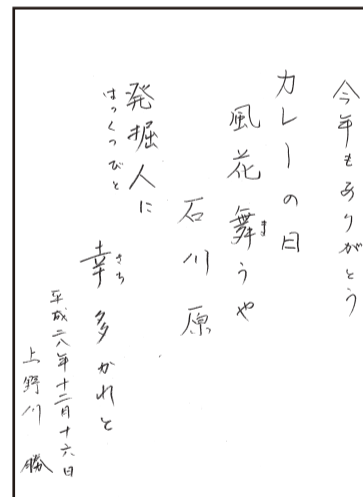 今年もありがとう
カレーの日
風花舞うや
まま
石川原
発掘人に
はっくつびと
幸多かれと
さち
平成二八年十二月十六日
上野川 勝